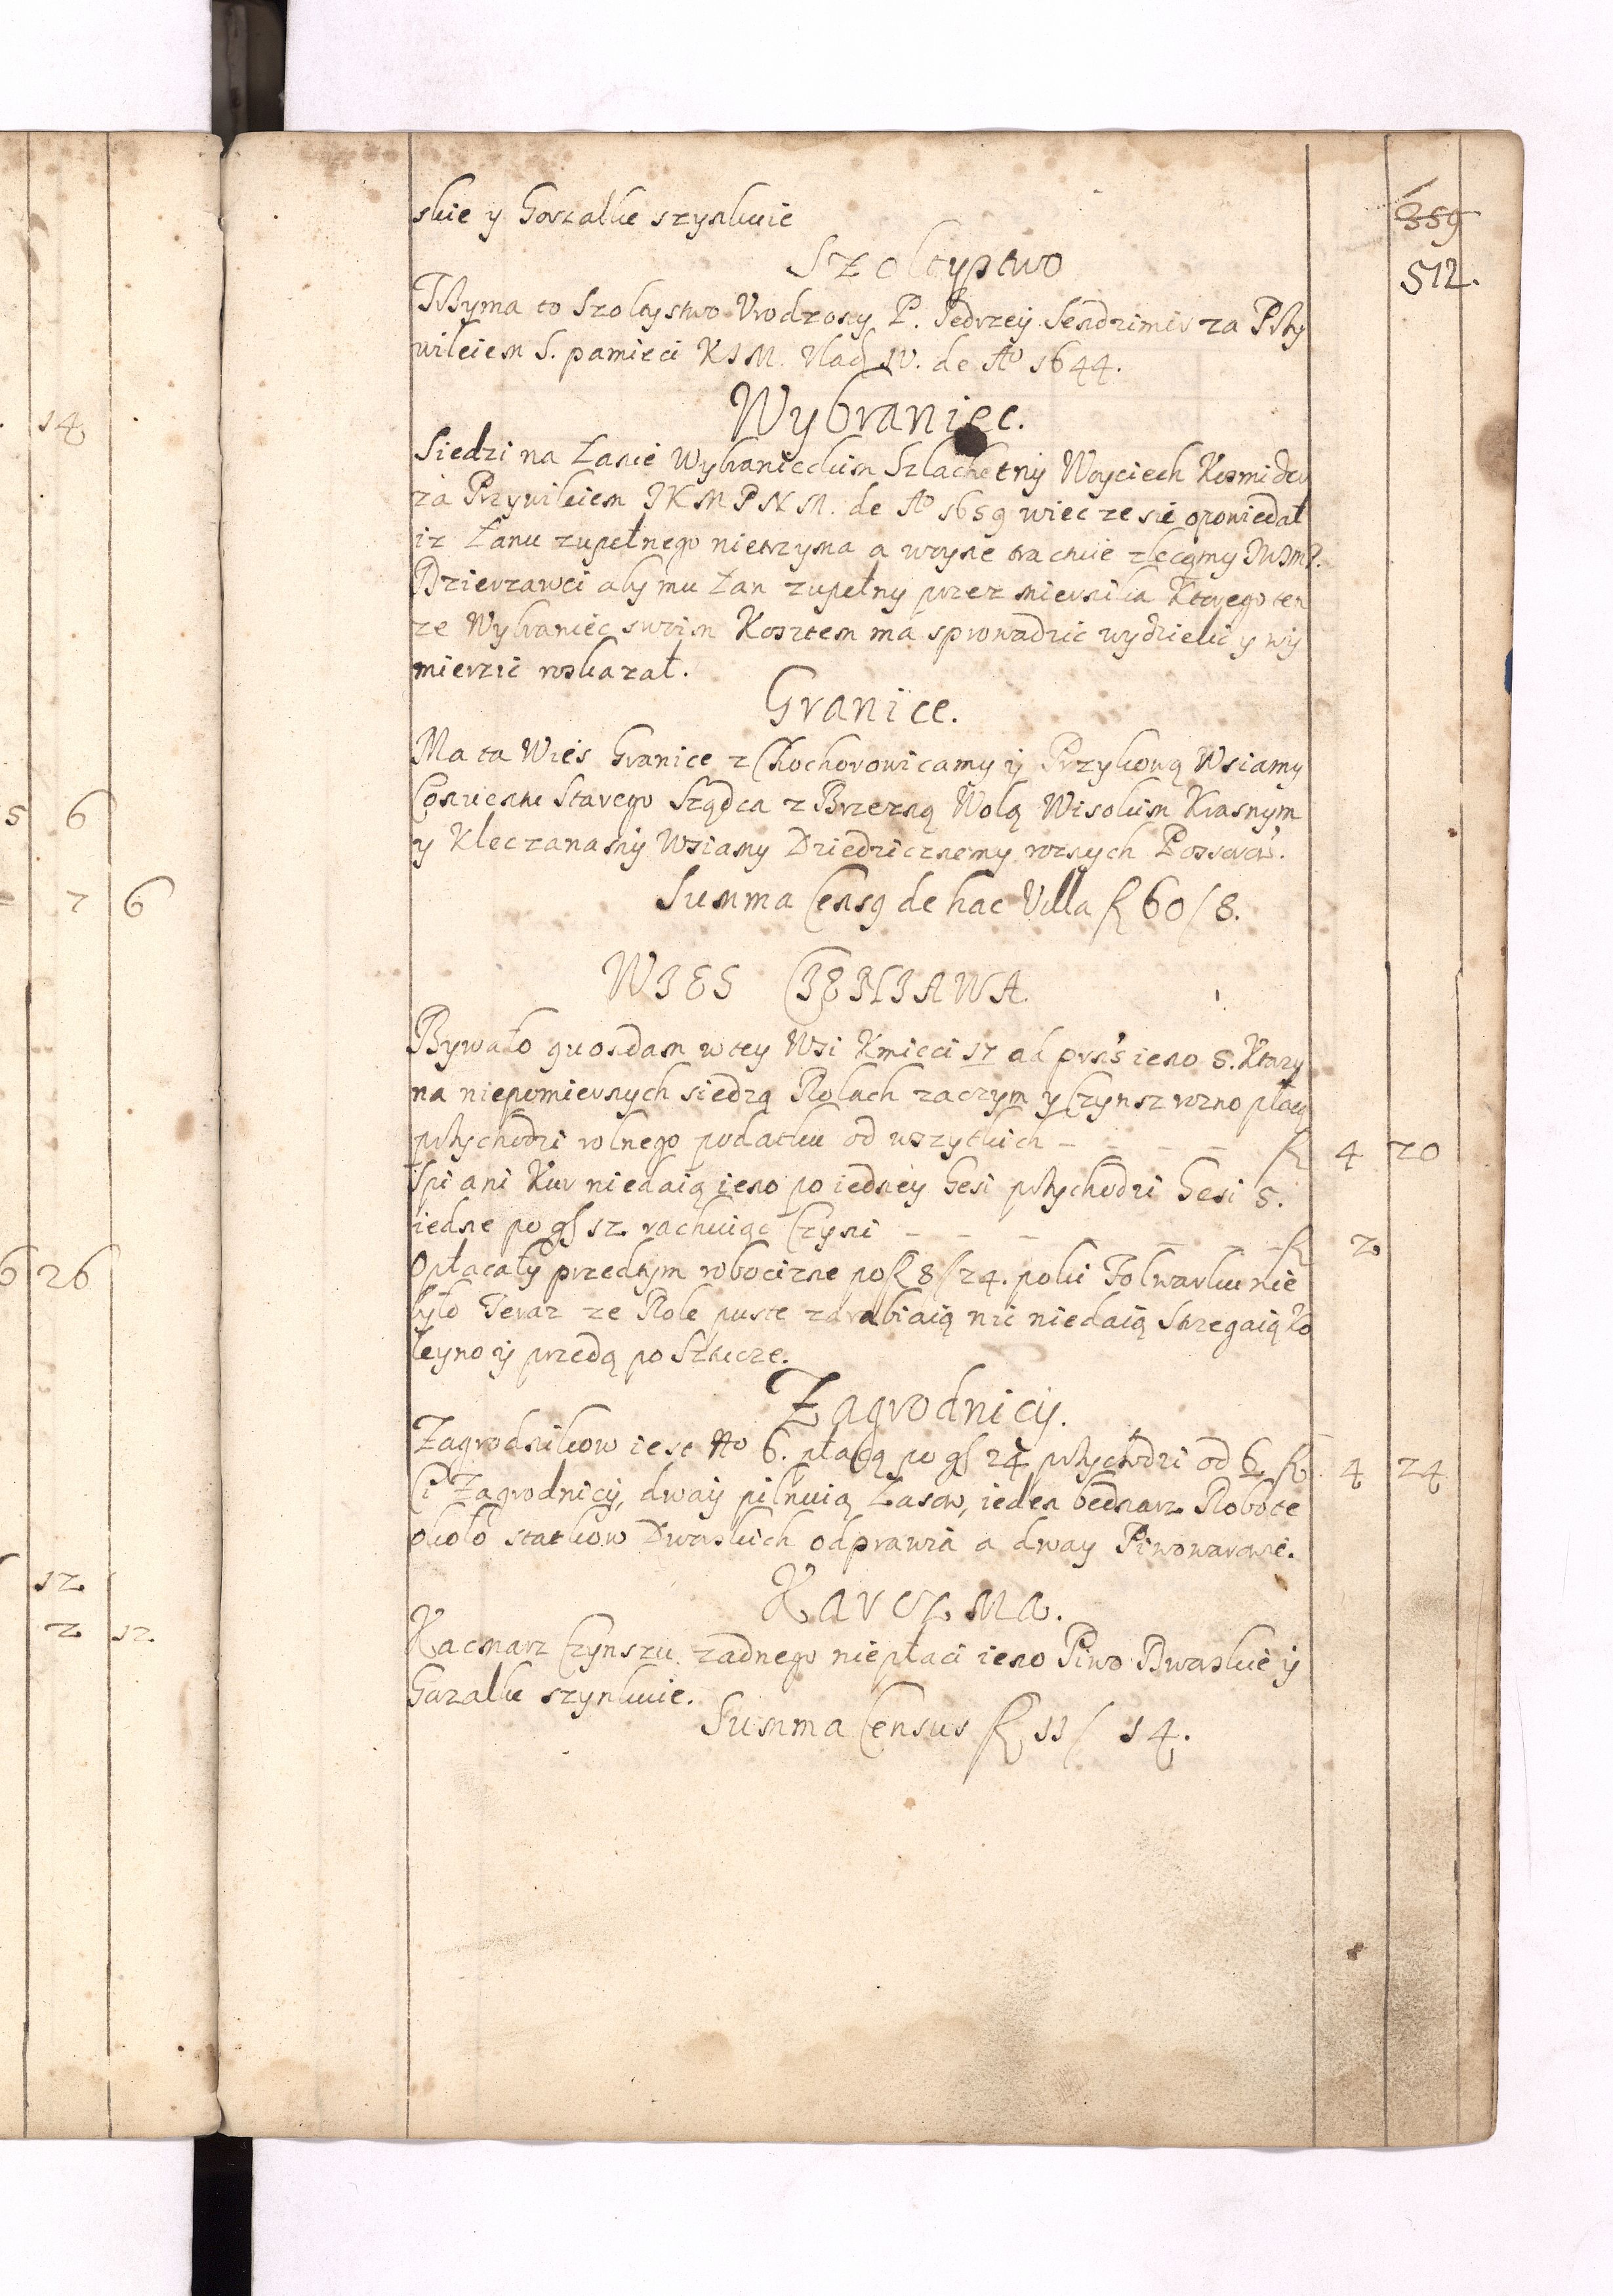 14
5 6
7 6
6 26
12
2 12.
359
512.
skie y Gorzałke szynkuie
Szołtystwo
Trzyma to Szołtystwo Urodzony P. Jędrzey Sendzimir za Przy
wileiem S. pamięci KJM. Vlad IV. de Ao 1644.
Wybraniec.
Siedzi na Łanie Wybranieckim Szlachetny Woyciech Kozmider
za Przywileiem JKMPNM. de Ao 1659 wiec ze sie opowiedał
iz Łanu zupełnego nietrzyma a wzyne tracuie zlecamy
Dzierzawci aby mu Łan zupełny przez miernika Ktorego ten
ze Wybraniec swoim Kosztem ma sprowadzic wydzielic y wy
mierzic roskazał.
Granice.
Ma ta Wies Granice z Chochorowicamy y Przykową Wsiamy
Starego Sządca z Brzezną Wolą Wisokim Krasnym
y Kleczanamy Wsiamy Dziedzicznemy roznych
Summa Censg de hac Villa fl 60/8.
WIES CIENIAWA
Bywało quondam w tey Wsi Kmieci 17 ad prns ieno 5. Ktorzy
na niepomiernych siedzą Rolach zaczym y Czynsz rozno płacą
przychodzi rolnego podatku od wszytkich - - - - - fl 4 20
Spi ani Kur niedaią ieno po iedney Gesi przychodzi Gesi 5.
iedne po gs 12 rachuiąc Czyni - - - - - - fl 2
Opłacały przedtym robocizne po fl 8/24. poki Folwarku nie
było Teraz ze Role puste zdrabiaią nic niedaią Strzegaią Ko
leyno y przedą po Sztucze.
Zagrodnicy.
Zagrodnikow iest No 6. płacą po gs 24 przychodzi od 6 fl 4 24
Ci Zagrodnicy, dway pilnuią Lasow, ieden bednarz Robote
około statkow Dworskich odprawia a dway Piwowarowie.
Karczma.
Kacmarz Czynszu zadnego niepłaci ieno Piwo Dworskie y
Gorzalke szynkuie.
Summa Census fl 11/14.